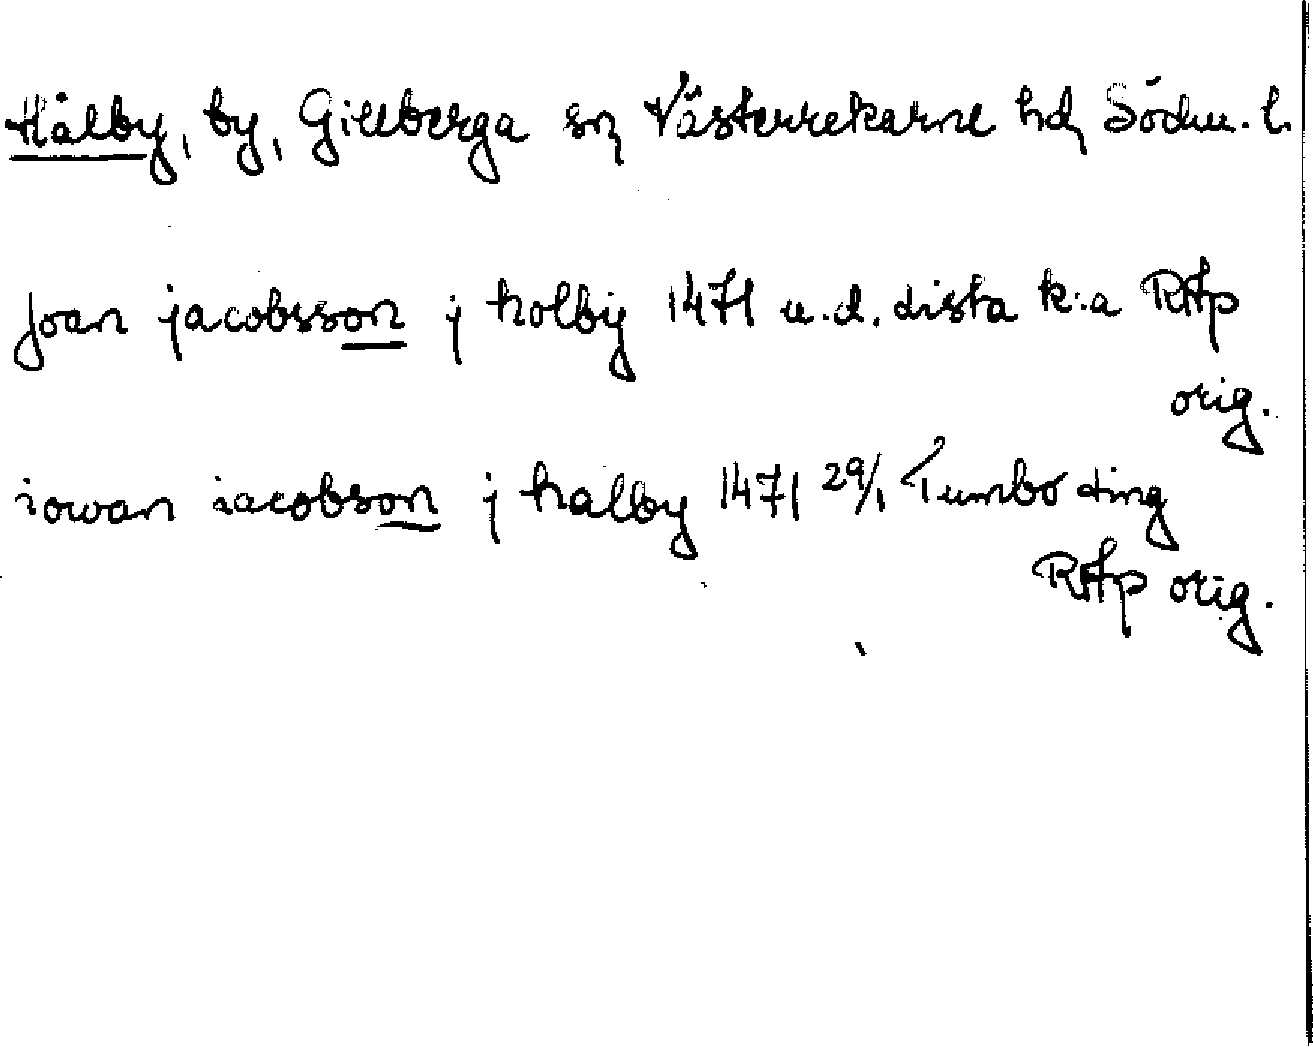 Hålby, by, Gillberga sn Västerrekarne hd Södm. l.
Joan jacobsson j holby 1471 u.d. dista k:a RAp
orig.
iowan iacobson j halby 1471 29/1 Tumbo ting
RAp orig.